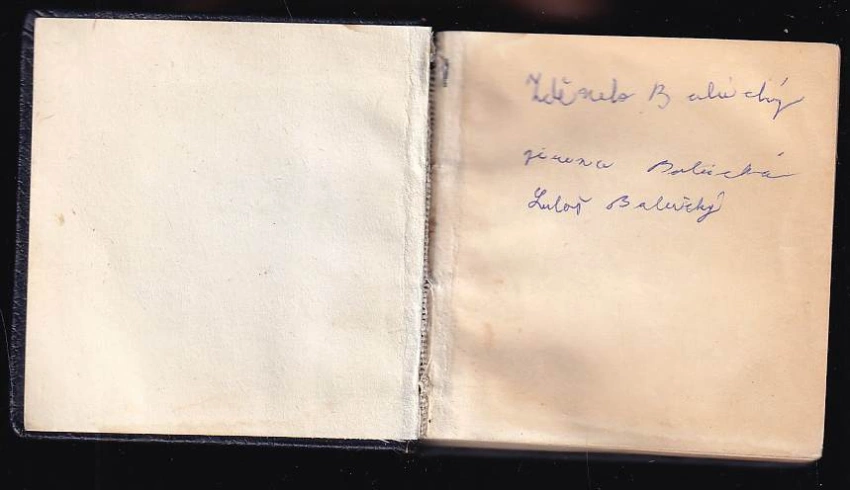 Zdeněk Balický
Jiřena Balická
Luboš Balický